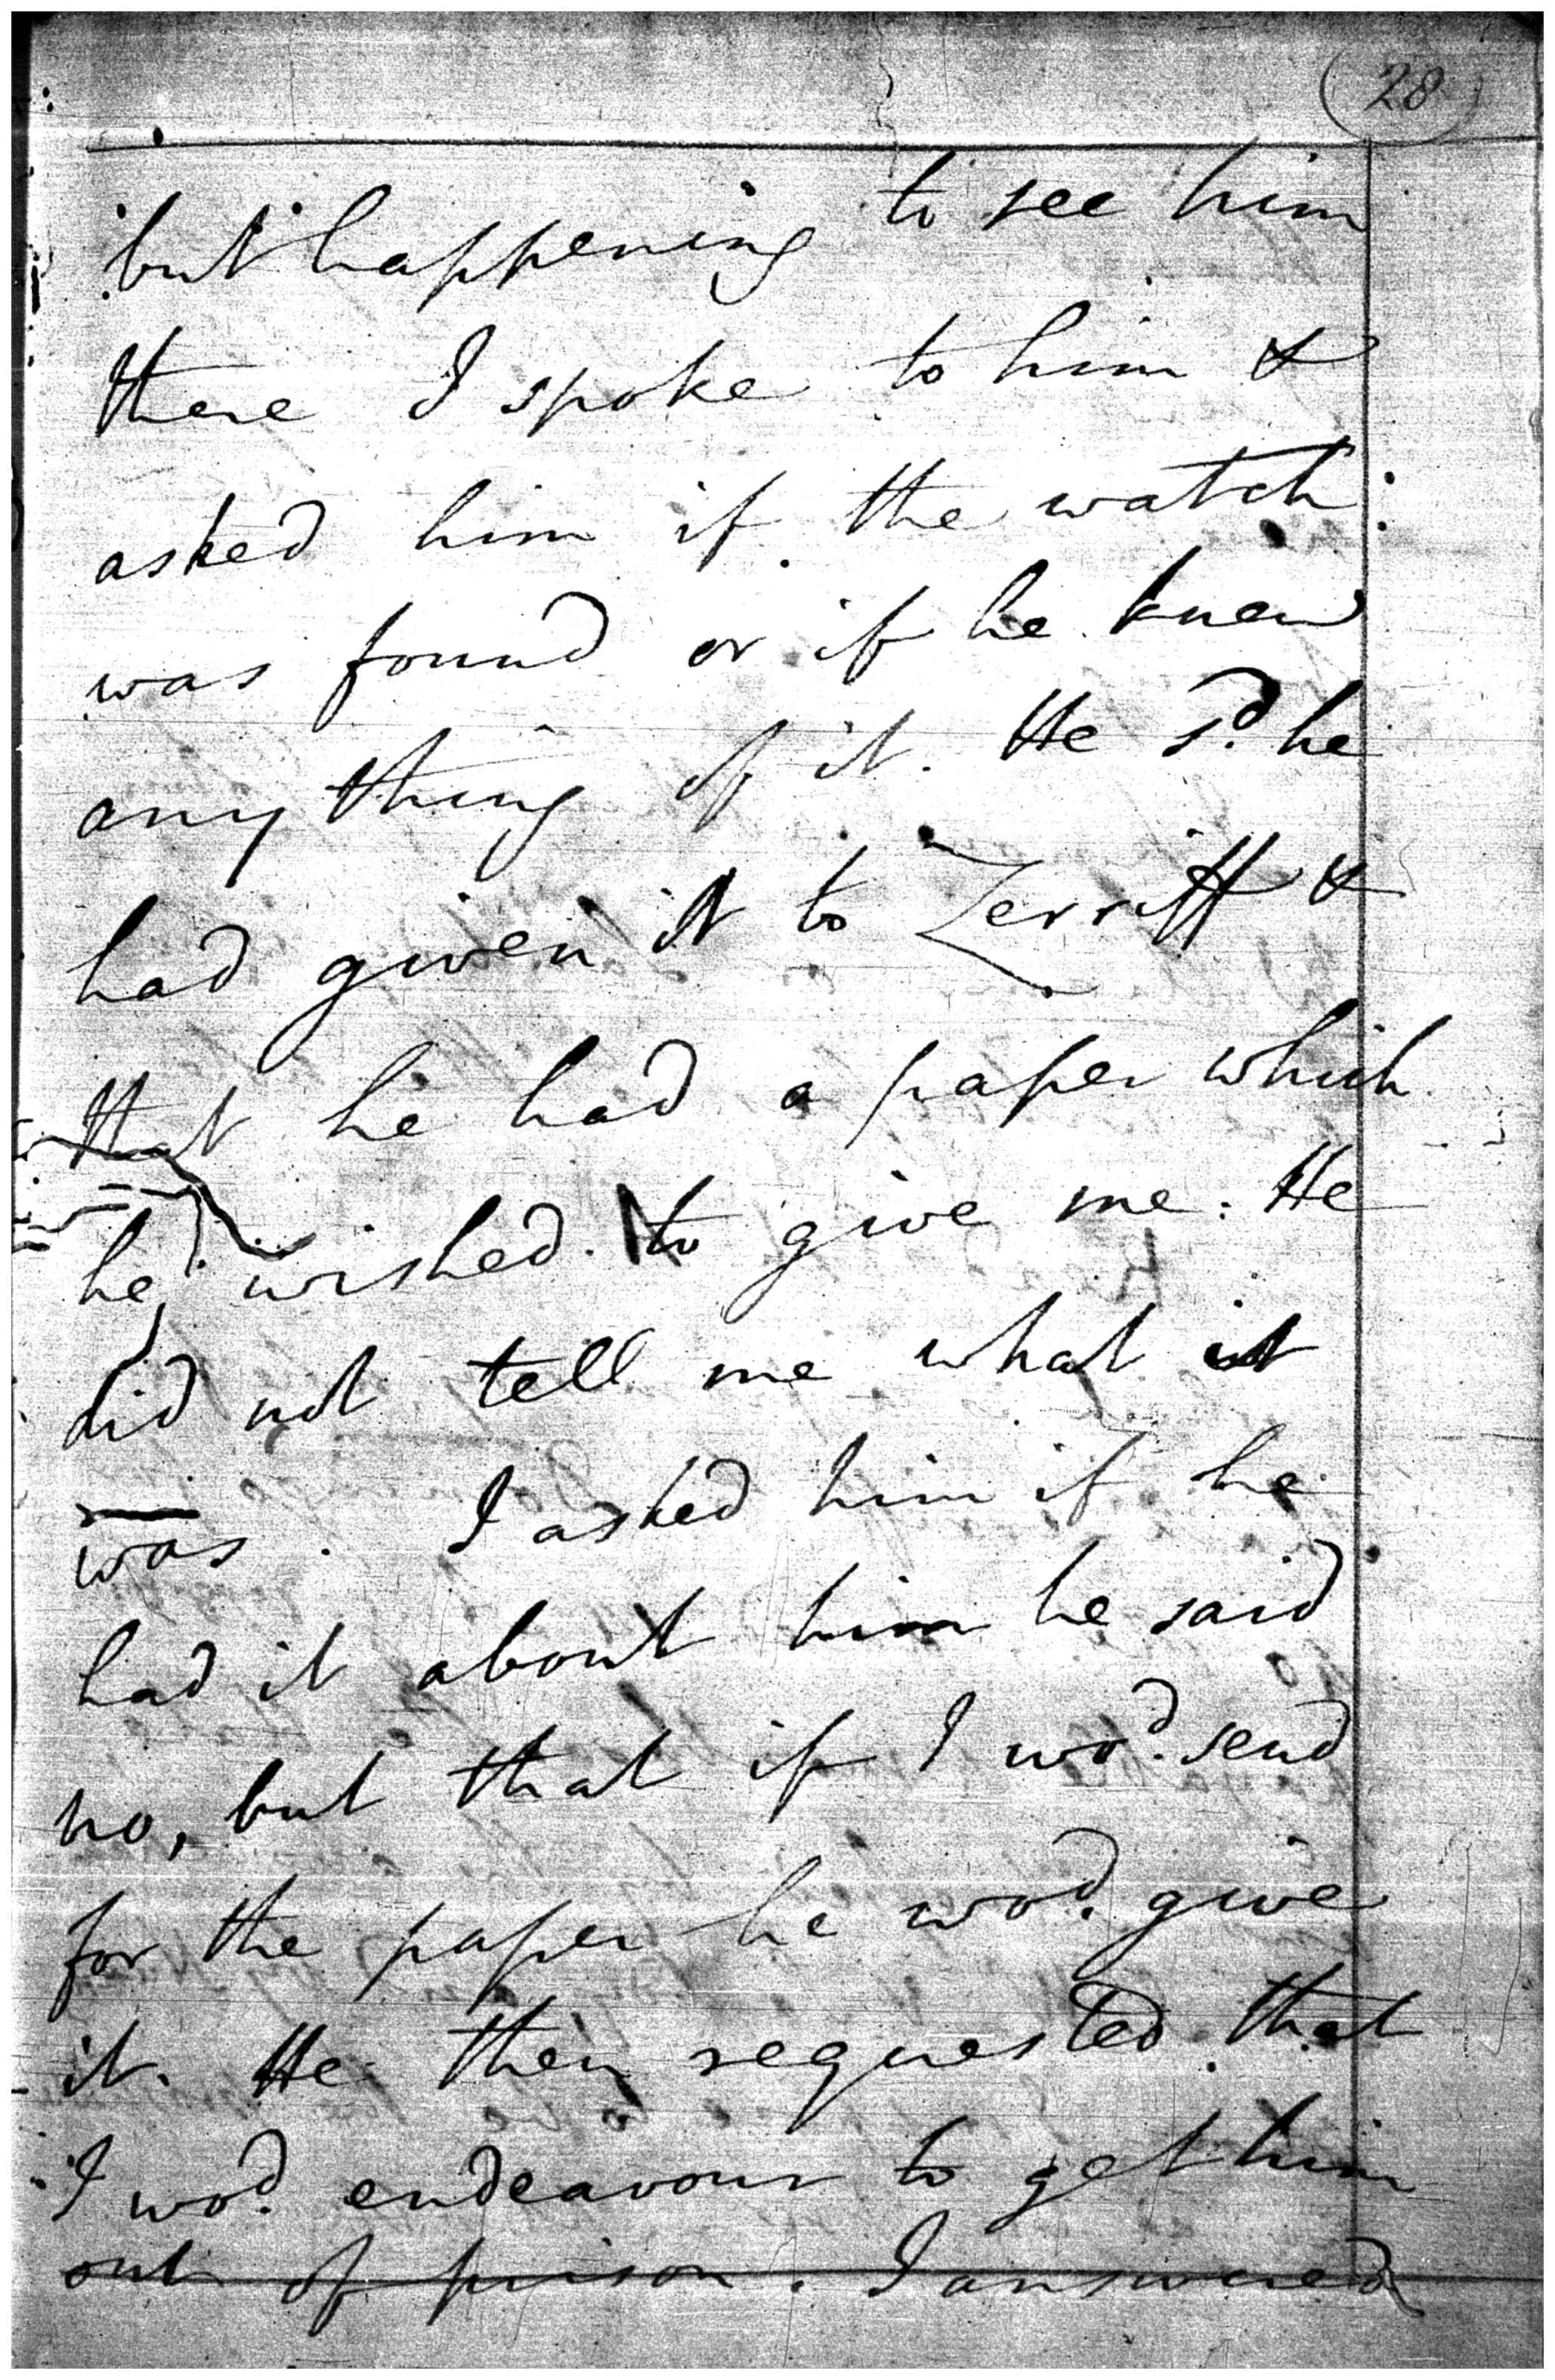 28
but happening to see him
there I spoke to him &
asked him if the watch
was found or if he knew
any thing of it. He sd. he
had given it to Zerritt &
that he had a paper which
he wished to give me. He
did not tell me what it
was. I asked him if he
had it about him he said
no, but that if I wod. send
for the paper he wod. give
it. He then requested that
I wod. endeavour to get him
out of prison. I answered